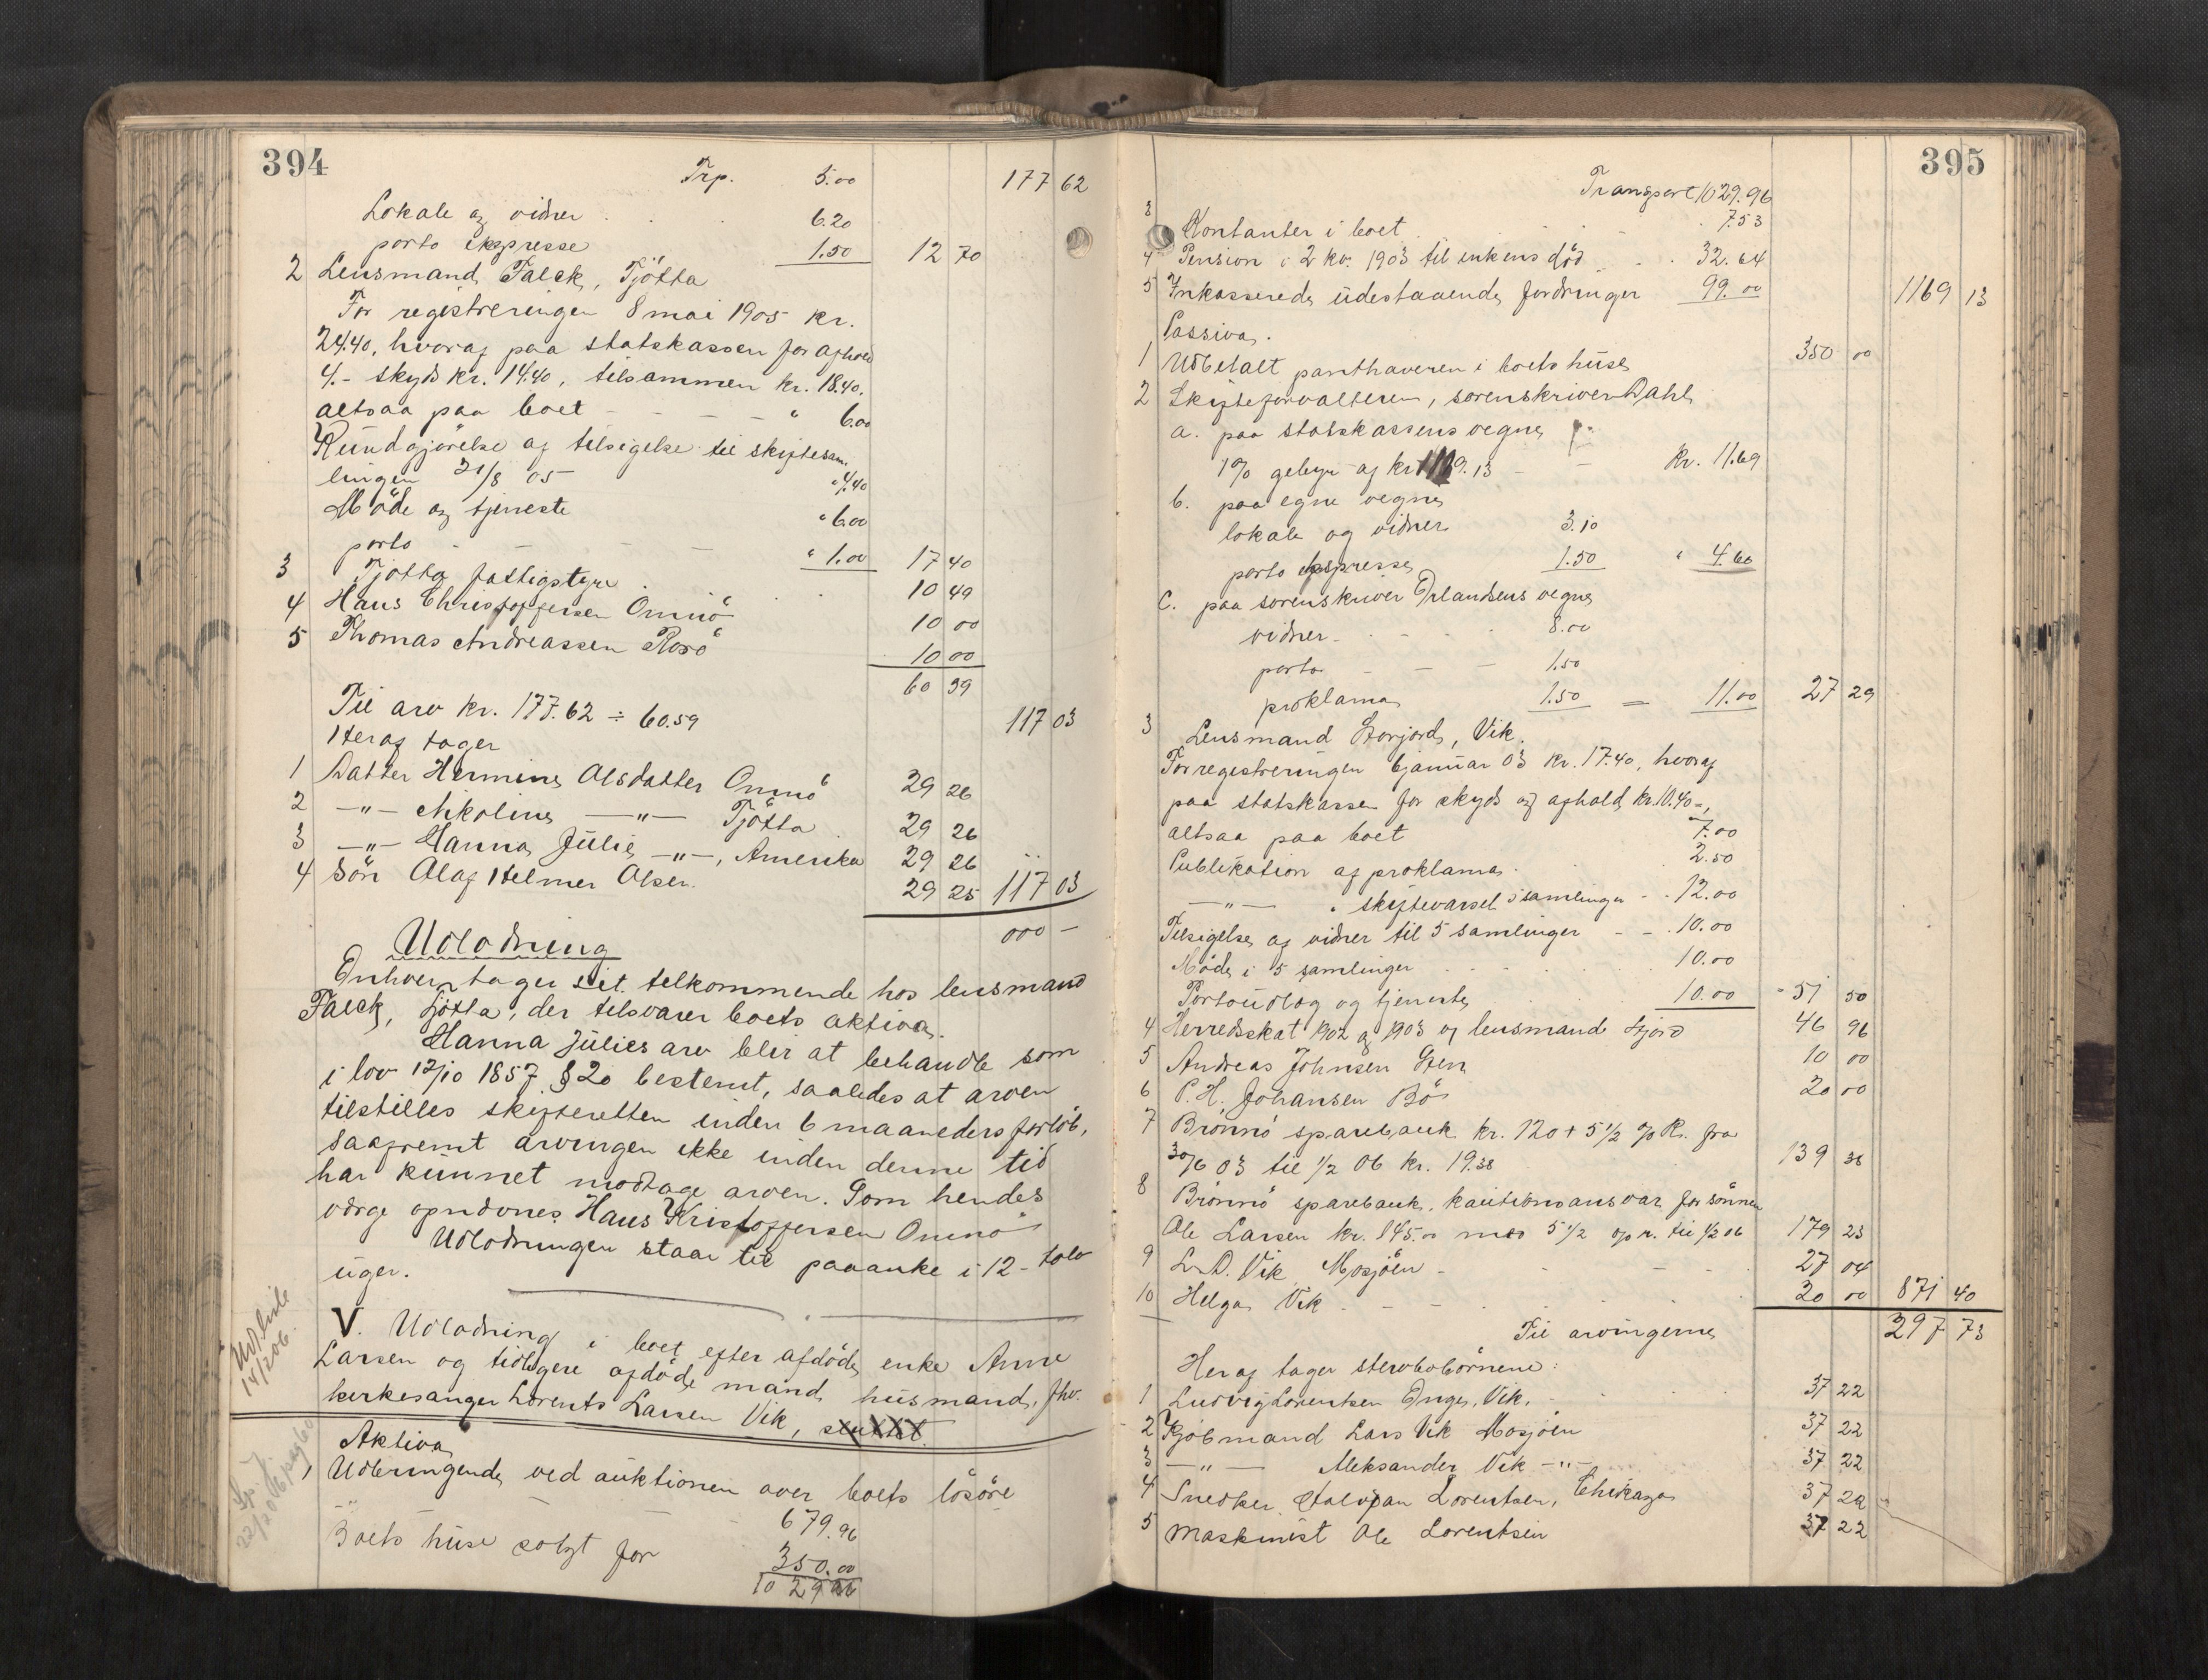 394
Trp. 5.00 177 62
Lokale og vidner 6.20
porto ekspresse 1.50 12 70
2 Lensmand Falck, Tjötta
For registreringen 8 mai 1905 kr.
24.40, hvoraf paa statskassen for ophold
4.- skyds kr. 14.40, tilsammen kr. 18.40,
altsaa paa boet - - - - " 6.00
Kundgjörelse af tilsigelse til skiftesam-
lingen 21/8 05 " 4.40
Möde og tjeneste " 6.00
porto - - - " 1.00 17 40
3 Tjötta fattigstyre 10 49
4 Hans Christoffersen Omnö 10 00
5 Thomas Andreassen Rosö 10 00
60 59
Til arv kr. 177.62 ÷ 60.59 117 03
Heraf tager
1 Datter Hermine Olsdatter Omnö 29 26
2 -"- Nikoline -"- Tjötta 29 26
3 -"- Hanna Julie -"-, Amerika 29 26
4 Sön Olaf Helmer Olsen. 29 25 117 03
000 -
Udlodning
Enhver tager sit tilkommende hos lensmand
Falck, Tjötta, der tilsvarer boets aktiva.
Hanna Julies arv blir at behandle som
i lov 12/10 1857 § 20 bestemt, saaledes at arven
tilstilles skifteretten inden 6 maaneders forlöb,
saafremt arvingen ikke inden denne tid
har kunnet modtage arven. Som hendes
værge opnævnes Hans Kristoffersen Omnö
Udlodningen staar til paaanke i 12 - tolv
uger.
V. Udlodning i boet efter afdöde enke Anne
Larsen og tidligere afdöde mand husmand, fhv.
kirkesanger Lorents Larsen Vik, sluttet.
Aktiva
1 Udbringende ved auktionen over boets lösöre
679.96
Boets huse solgt for 350.00
1029 96
14/2 06.
395
Transport 1029.96
3 Kontanter i boet 7.53
4 Pension i 2 kv. 1903 til enkens död 32.64
5 Inkasserede udestaaende fordringer 99.00 1169 13
Passiva.
1 Udbetalt panthaveren i boets huse 350 00
2 Skifteforvalteren, sorenskriver Dahl
a. paa statskassens vegne
1% gebyr af kr 1169.13 - - kr. 11.69
b. paa egne vegne
lokale og vidner 3.10
porto ekspresse 1.50 " 4.60
C. paa sorenskriver Erlandsens vegne
vidner - 8.00
porto - - 1.50
proklama 1.50 = 11.00 27 29
3 Lensmand Storjord, Vik.
For registreringen 6 januar 03 kr. 17.40, hvoraf
paa statskassen for skyds og ophold kr. 10.40 -,
altsaa paa boet 7.00
Publikation af proklama 2.50
-"- " skiftevarsel 5 samlinger - 12.00
Tilsigelse af vidner til 5 samlinger - - 10.00
Möde i 5 samlinger 10.00
Portoudlæg og tjeneste 10.00 51 50
4 Herredsskat 1902 og 1903 v/ lensmand 46 96
5 Andreas Johnsen Sten 10 00
6 P. H. Johansen Bö 20 00
7 Brönnö sparebank kr. 120 + 5 1/2 % R. fra
30/6 03 til 1/2 06 kr. 19.38 139 38
8 Brönnö sparebank, kautionsansvar for sönnen
Ole Larsen kr. 145.00 med 5 1/2 % r. til 1/2 06 179 23
9 L. D. Vik Mosjöen - - - 27 04
10 Helga Vik - - - 20 00 871 40
Til arvingerne 297 73
Heraf tager stervbobörnene:
1 Ludvig Lorentsen Enge, Vik. 37 22
2 Kjöbmand Lars Vik Mosjöen 37 22
3 -"- Aleksander Vik -"- 37 22
4 Snedker Lorentsen, Chikago 37 22
5 Maskinist Ole Lorentsen 37 22